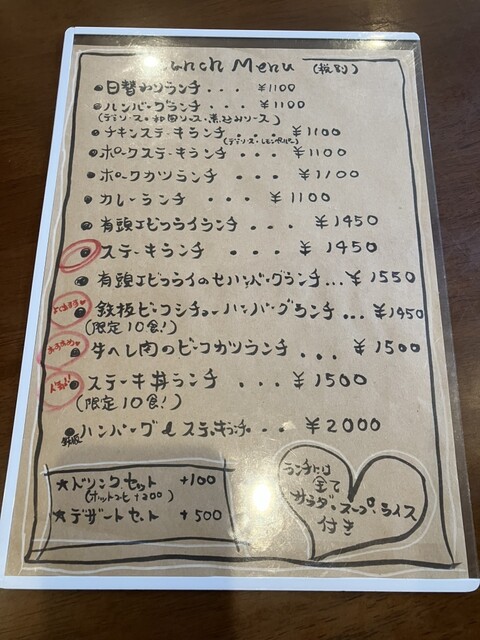 Lunch Menu (税別)
日替わりランチ... ¥1100
ハンバーグランチ... ¥1100
(デミソース・和風ソース・煮込みソース)
チキンステーキランチ.... ¥1100
(デミソース・レモンペッパー)
ポークステーキランチ... ¥1100
ポークカツランチ... ¥1100
カレーランチ... ¥1100
有頭エビフライランチ... ¥1450
ステーキランチ... ¥1450
有頭エビフライのせハンバーグランチ...¥1550
鉄板ビーフシチューハンバーグランチ...¥1450
(限定10食!)
おすすめ♥
牛ヘレ肉のビーフカツランチ... ¥1500
人気!
ステーキ丼ランチ... ¥1500
(限定10食!)
鉄板
ハンバーグ&ステーキランチ... ¥2000
★ドリンクセット +100
(ホットっとしょ+200)
★デザートセット +500
ランチには
全て
サラダ・スープ・ライス
付き